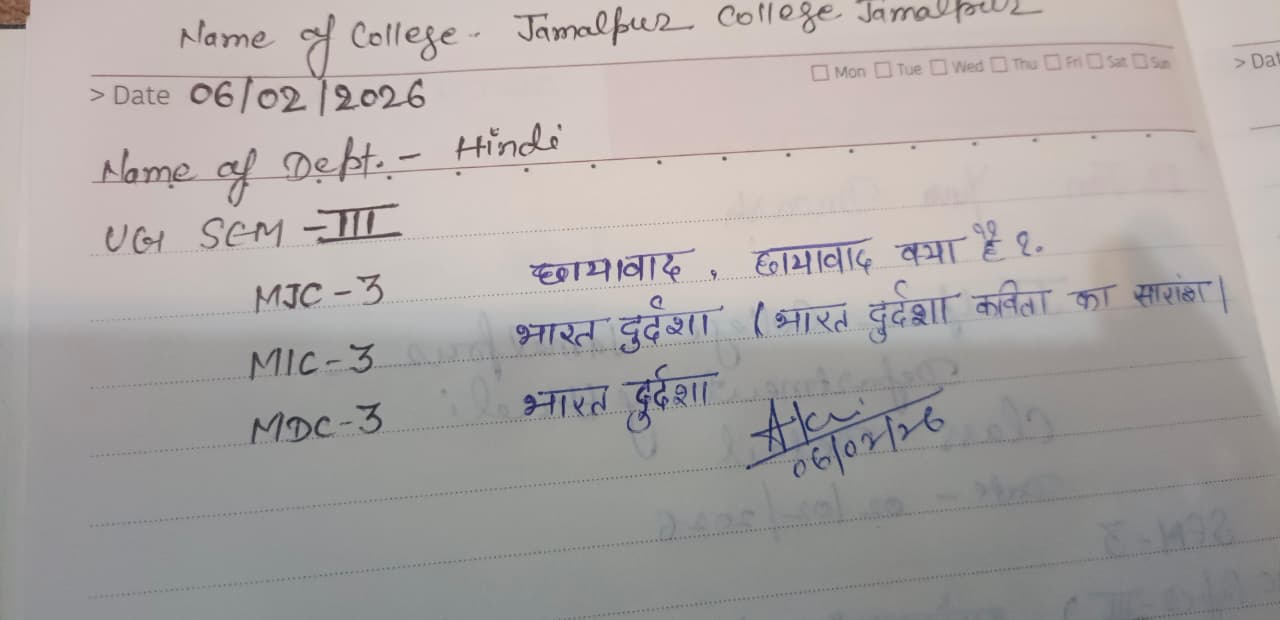 Name of College - Jamalpur College Jamalpur
Mon Tue Wed Thu Fri Sat Sun
> Date 06/02/2026
Name of Dept. - Hindi
UG SEM - III
MJC - 3 छायावाद, छायावाद क्या है ?.
MIC - 3 भारत दुर्दशा (भारत दुर्दशा कविता का सारांश।
MDC - 3 भारत दुर्दशा
06/02/26